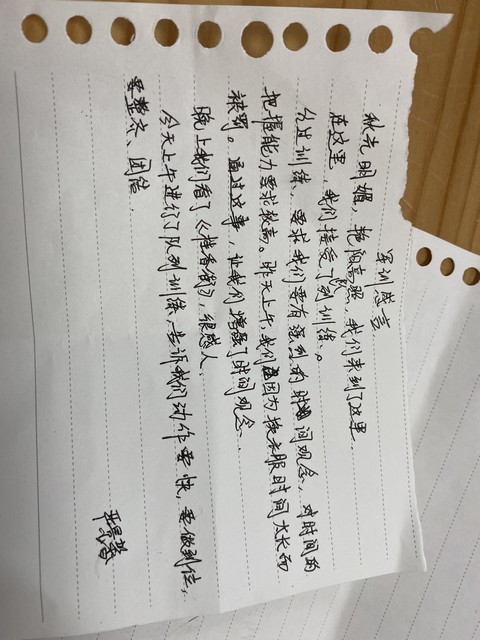 军训感言
秋光明媚，艳阳高照，我们来到了这里.
在这里，我们接受了队列训练。
台过训练，要求我们要有强烈的时间观念，对时间的
把握能力要求较高。昨天上午，我们因为换衣服时间太长而
被罚。通过这事，让我们增强了时间观念.
晚上我们看了《推着我》，很感人.
今天上午进行了队列训练，告诉我们动作要快，要做到位，
要整齐、团结.